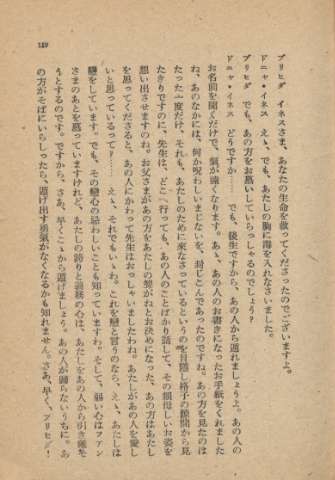 ブリヒダ　イネスさま、あなたの生命を救つてくださつたのでございますよ。
ドニャ・イネス　えゝ、でも、あたしの胸に毒を入れなさいました。
ブリヒダ　でも、あの方をお慕いしていらつしやるのでしよう？
ドニャ・イネス　どうですか……　でも、後生ですから、あの人から遁れましようよ。あの人の
お名前を聞くだけで、氣が遠くなります。あゝ、あの人のお書きになつたお手紙をくれました
ね、あのなかには、何か呪わしいまじないを、封じこんであつたのですね。あの方を見たのは
たつた一度だけ、それも、あたしのために來なさつているというのを目隱し格子の隙間から見
たきりですのに、先生は、どこへ行つても、あの人のことばかり話して、その親母しいお姿を
想い出させますのね。お父さまがあの方をあたしの契がねとお決めになつた、あの方はあたし
を思つてくださると、あの人にかわつて先生はおつしやいましたわね。あたしがあの人を愛し
いと思つているつて？……　えゝ、それでもいゝわ。これを戀と言うのなら、えゝ、あたしは
戀をしています。でも、その戀心の詰わしいことも知つていますわ。そして、弱い心はファン
さまのあとを慕つていますけれど、あたしの誇りと義務の心は、あたしをあの人から引き離そ
うとするのです。ですから、さあ、早くこゝから遁げましよう。あの人が歸らないうちに。あ
の方がそばにいらしつたら、遁げ出す勇氣がなくなるかも知れません。さあ、早く、ブリヒダ！
189